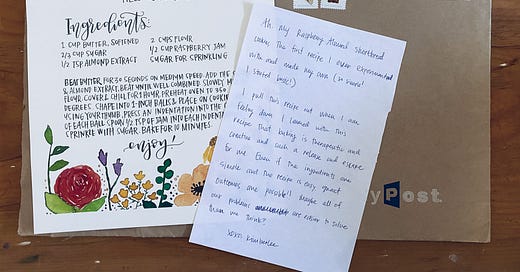 Ingredients:
1 CUP BUTTER, SOFTENED
2/3 CUP SUGAR
1/2 TSP ALMOND EXTRACT
2 CUPS FLOUR
1/2 CUP RASPBERRY JAM
SUGAR FOR SPRINKLING
BEAT BUTTER FOR 30 SECONDS ON MEDIUM SPEED. ADD THE S
& ALMOND EXTRACT. BEAT UNTIL WELL COMBINED. SLOWLY M
FLOUR. COVER & CHILL FOR 1 HOUR. PREHEAT OVEN TO 350
DEGREES. SHAPE INTO 1-INCH BALLS & PLACE ON COOKIE
USING YOUR THUMB, PRESS AN INDENTATION INTO THE
OF EACH BALL. SPOON 1/2 TSP OF JAM INTO EACH INDENTAT
SPRINKLE WITH SUGAR. BAKE FOR 10 MINUTES.
enjoy!
Ah. My Raspberry Almond Shortbread
cookies. The first recipe I ever experimented
with and made my own (so sweet!
I started
I pull this recipe out when I am
feeling down. I learned with this
recipe that baking is therapeutic and
creative and such a release and escape
for me. Even if the ingredients are
simple and the recipe is easy, great
outcomes are possible! Maybe all of
our problems are easier to solve
than we think?
xoxo,
yPost.